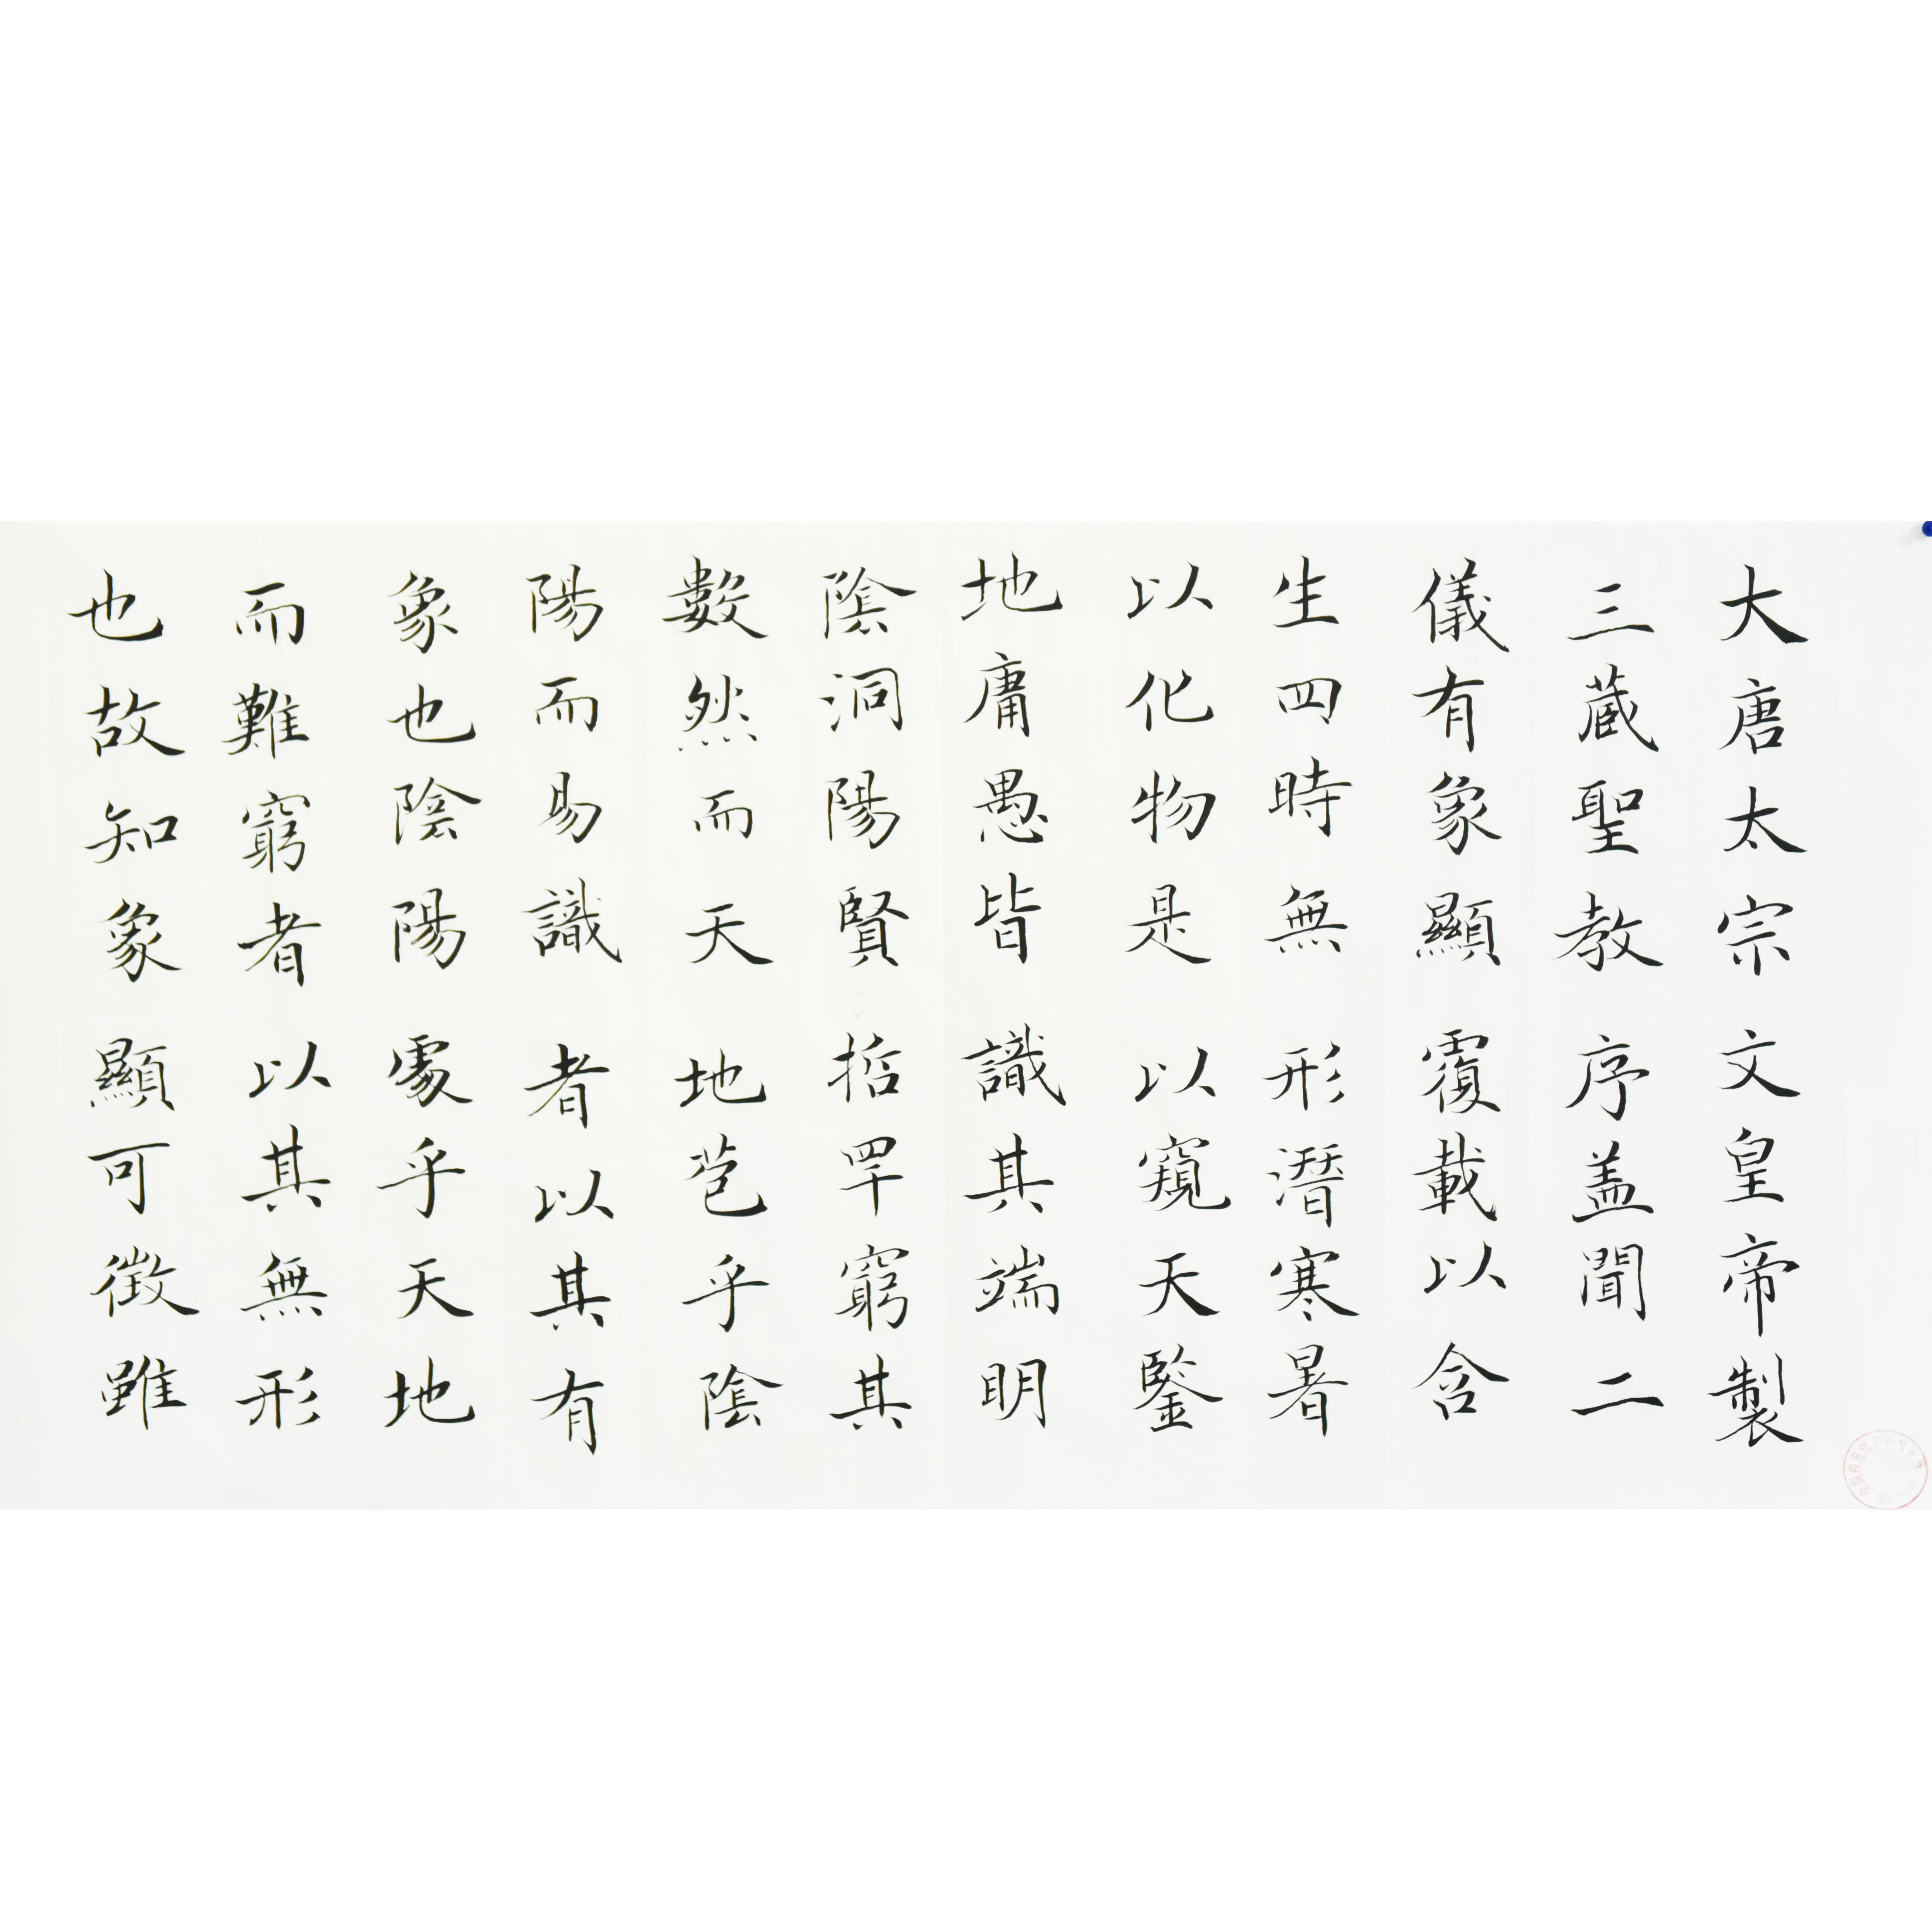 大唐太宗文皇帝製
三蔵聖教序盖聞二
儀有象顯覆載以含
生四時無形潛寒暑
以化物是以窺天鑒
地庸愚皆識其端明
陰洞陽賢哲罕窮其
數然而天地苞乎陰
陽而易識者以其有
象也陰陽處乎天地
而難窮者以其無形
也故知象顯可徵雖